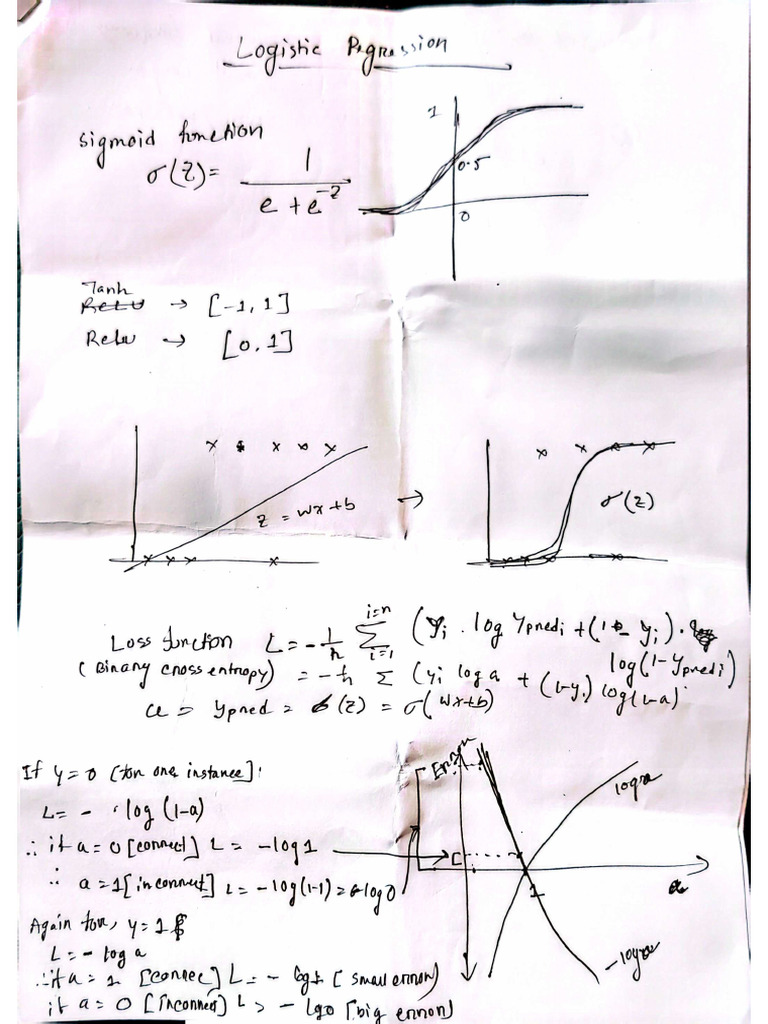 Logistic Regression
1
sigmoid function
σ(z) = 1 / e + e^-z
0.5
0
Tanh
Relu → [-1, 1]
Relu → [0, 1]
z = wx + b
→
σ(z)
Loss function L = - 1/n Σ i=1 i=n (yi . log ypredi + (1 - yi) .
log(1 - ypredi)
(Binary cross entropy) = - 1/n Σ (yi log a + (1-yi) log(1-a)
a = ypred = σ(z) = σ(wx+b)
If y = 0 [for one instance]:
L = - log (1-a)
∴ if a = 0 [correct] L = -log 1
∴ a = 1 [incorrect] L = -log(1-1) = -log 0
Again for, y = 1
L = - log a
∴ if a = 1 [correc] L = - log 1 [small error]
if a = 0 [incorrect] L = - lg 0 [big error]
Error
log a
1
a
-log a